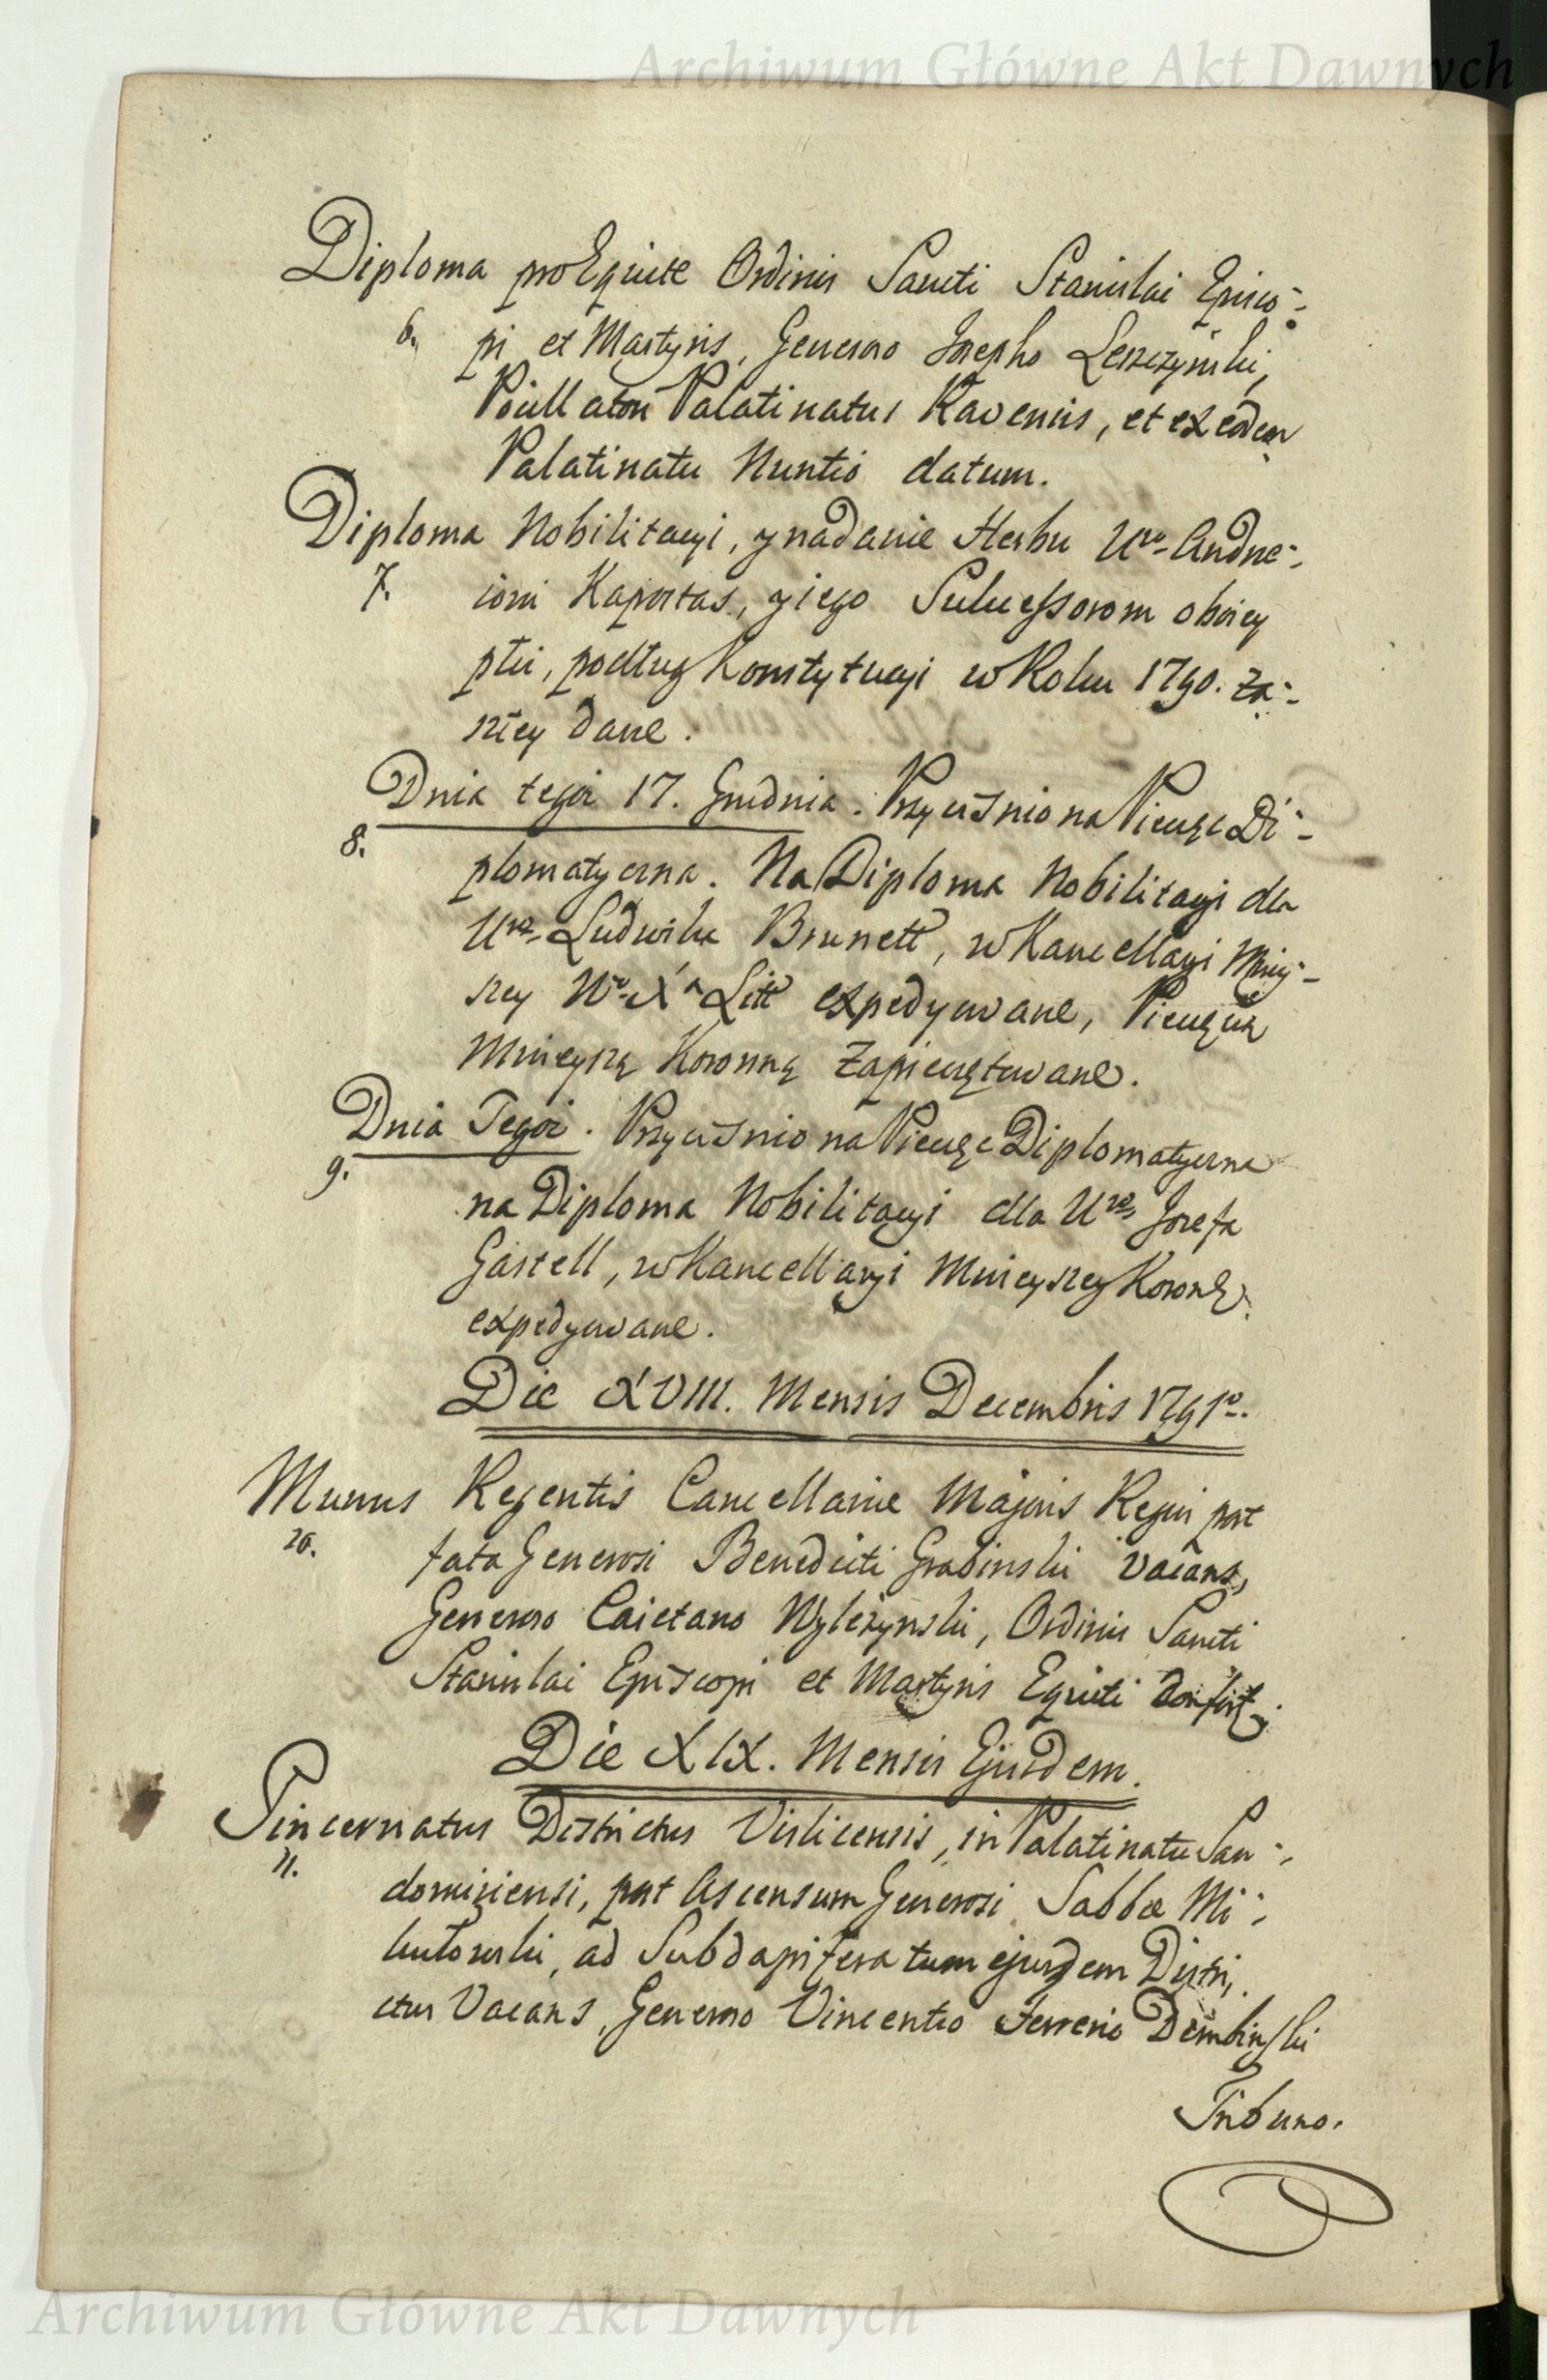 Archiwum Główne Akt Dawnych
Diploma pro Equite Ordinis Sancti Stanislai Episco-
6. pi et Martyris, Generoso Josepho Leszczynski,
Pocillatori Palatinatus Ravensis, et ex eodem
Palatinatu Nuntio datum.
Diploma Nobilitacyi, y nadanie Herbu Uro Andrze-
7. iowi Kapostas, y iego Sukcessorom oboiey
płci, podług Konstytucyi w Roku 1790. za-
szłey dane.
Dnia tegoż 17. Grudnia. Przyciśniona Pieczęć Di-
8. plomatyczna. Na Diploma Nobilitacyi dla
Uro Ludwika Brunett, w Kancellaryi Mniey-
szey W. X. Litt expedyowane, Pieczęcią
Mnieyszą Koronną zapieczętowane.
Dnia Tegoż. Przyciśniona Pieczęć Diplomatyczna
9. na Diploma Nobilitacyi dla Uro Jozefa
Gastell, w Kancellaryi Mnieyszey Koronę.
expedyowane.
Die XVIII. Mensis Decembris 1791o.
Munus Regentis Cancellariae Majoris Regni post
10. fata Generosi Benedicti Grabinski vacans,
Generoso Caietano Wyleżynski, Ordinis Sancti
Stanislai Episcopi et Martyris Equiti confert.
Die XIX. Mensis Ejusdem.
Pincernatus Districtus Vislicensis, in Palatinatu San-
11. domiriensi, post Ascensum Generosi Sabbae Mi-
kułowski, ad Subdapiferatum ejusdem Distri,
ctus Vacans, Generoso Vincentio Ferrerio Dembinski
Tribuno.
Archiwum Główne Akt Dawnych